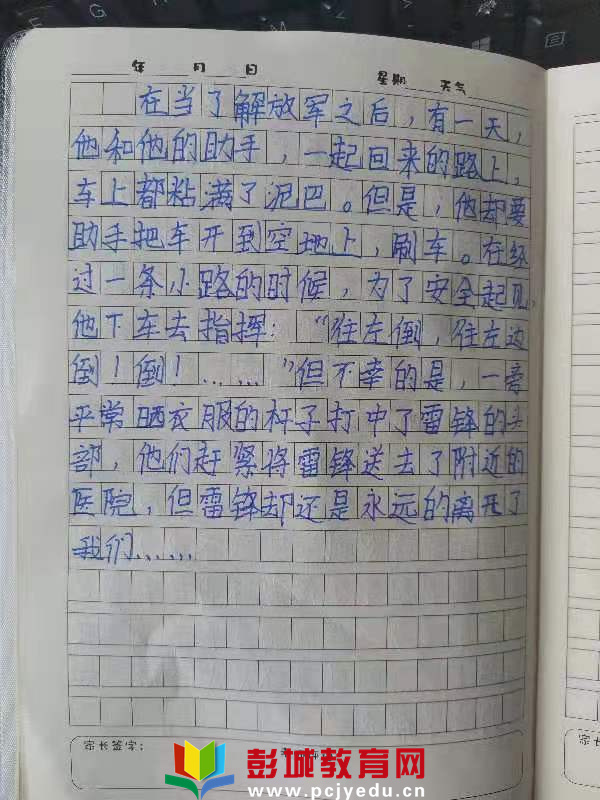 年 月 日 星期 天气
在当了解放军之后，有一天，
他和他的助手，一起回来的路上，
车上都粘满了泥巴。但是，他却要
助手把车开到空地上，刷车。在经
过一条小路的时候，为了安全起见，
他下车去指挥：“往左倒，往左边
倒！倒！……”但不幸的是，一旁
平常晒衣服的杆子打中了雷锋的头
部，他们赶紧将雷锋送去了附近的
医院，但雷锋却还是永远的离开了
我们……
家长签字：
彭城教育网
www.pcjyedu.cn